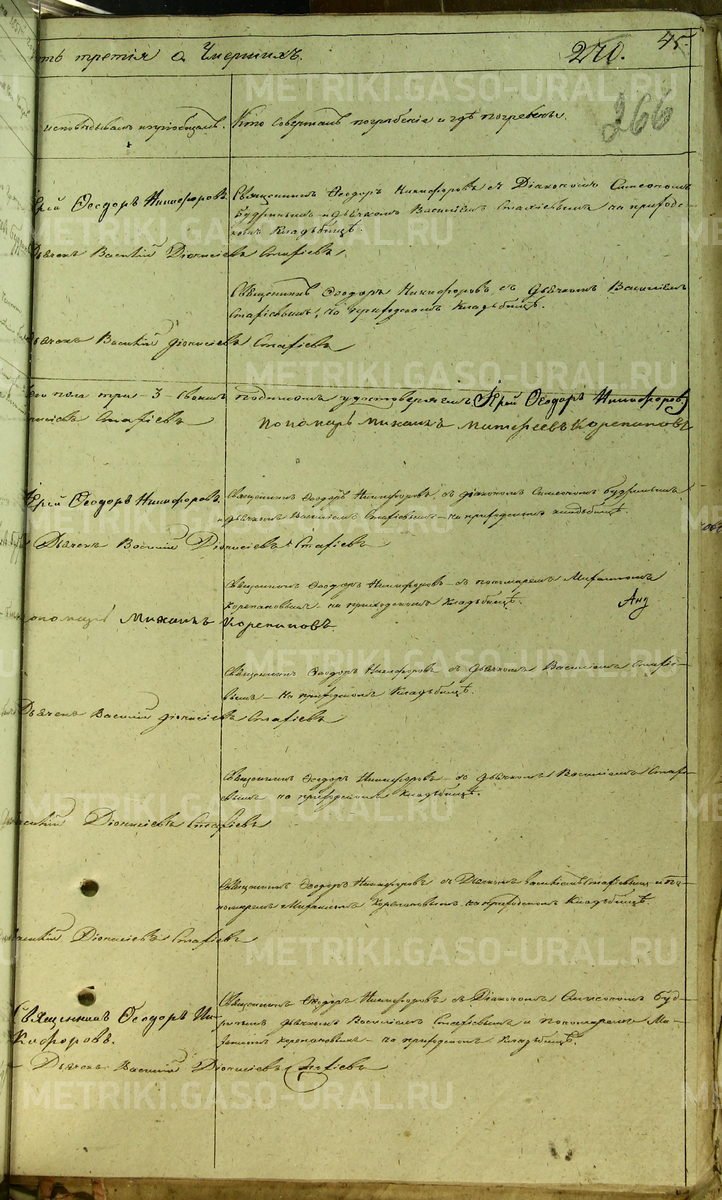 45.
ть третія о Умершихъ.
270.
266
исповѣдывалъ и пріобщалъ.
Кто совершалъ погребеніе и гдѣ погребены.
Ерей Ѳеодоръ Никифоровъ
Священникъ Ѳеодоръ Никифоровъ съ Діакономъ Симеономъ
Будринымъ и дьячкомъ Василіемъ Стафіевымъ на приходс-
комъ Кладбищѣ.
Дьячекъ Василій Діонисіевъ Стафіевъ
Священникъ Ѳеодоръ Никифоровъ съ дьячкомъ Василіемъ
Стафіевымъ, на приходскомъ Кладбищѣ.
Дьячекъ Василій Діонисіевъ Стафіевъ
пола три - 3 - своимъ подписомъ удостовѣряемъ Іерей Ѳеодоръ Никифоровъ
нисіевъ Стафіевъ
Пономарь Михаилъ Матвѣевъ Корепановъ
Ерей Ѳеодоръ Никифоровъ
Священникъ Ѳеодоръ Никифоровъ, съ діакономъ Симеономъ Будринымъ
и дьячкомъ Василіемъ Стафіевымъ - на приходскомъ кладбищѣ.
Дьячекъ Василій Діонисіевъ Стафіевъ
Священникъ Ѳеодоръ Никифоровъ - съ пономаремъ Михаиломъ
Корепановымъ - на приходскомъ Кладбищѣ.
ономарь Михаилъ Корепановъ
Священникъ Ѳеодоръ Никифоровъ съ дьячкомъ Василіемъ Стафіе-
вымъ - на приходскомъ Кладбищѣ.
Дьячекъ Василій Діонисіевъ Стафіевъ
Священникъ Ѳеодоръ Никифоровъ - съ дьячкомъ Василіемъ Стафі-
евымъ на приходскомъ Кладбищѣ.
Василій Діонисіевъ Стафіевъ
Священникъ Ѳеодоръ Никифоровъ съ Дьячкомъ Василіемъ Стафіевымъ и По-
номаремъ Михаиломъ Корепановымъ на приходскомъ Кладбищѣ.
Василій Діонисіевъ Стафіевъ
Священникъ Ѳеодоръ Ни-
кифоровъ.
Священникъ Ѳеодоръ Никифоровъ съ Діакономъ Симеономъ Буд-
ринымъ дьячкомъ Василіемъ Стафіевымъ и пономаремъ Ми-
хаиломъ Корепановымъ - на приходскомъ Кладбищѣ.
Дьячекъ Василій Діонисіевъ Стафіевъ
METRIKI.GASO-URAL.RU